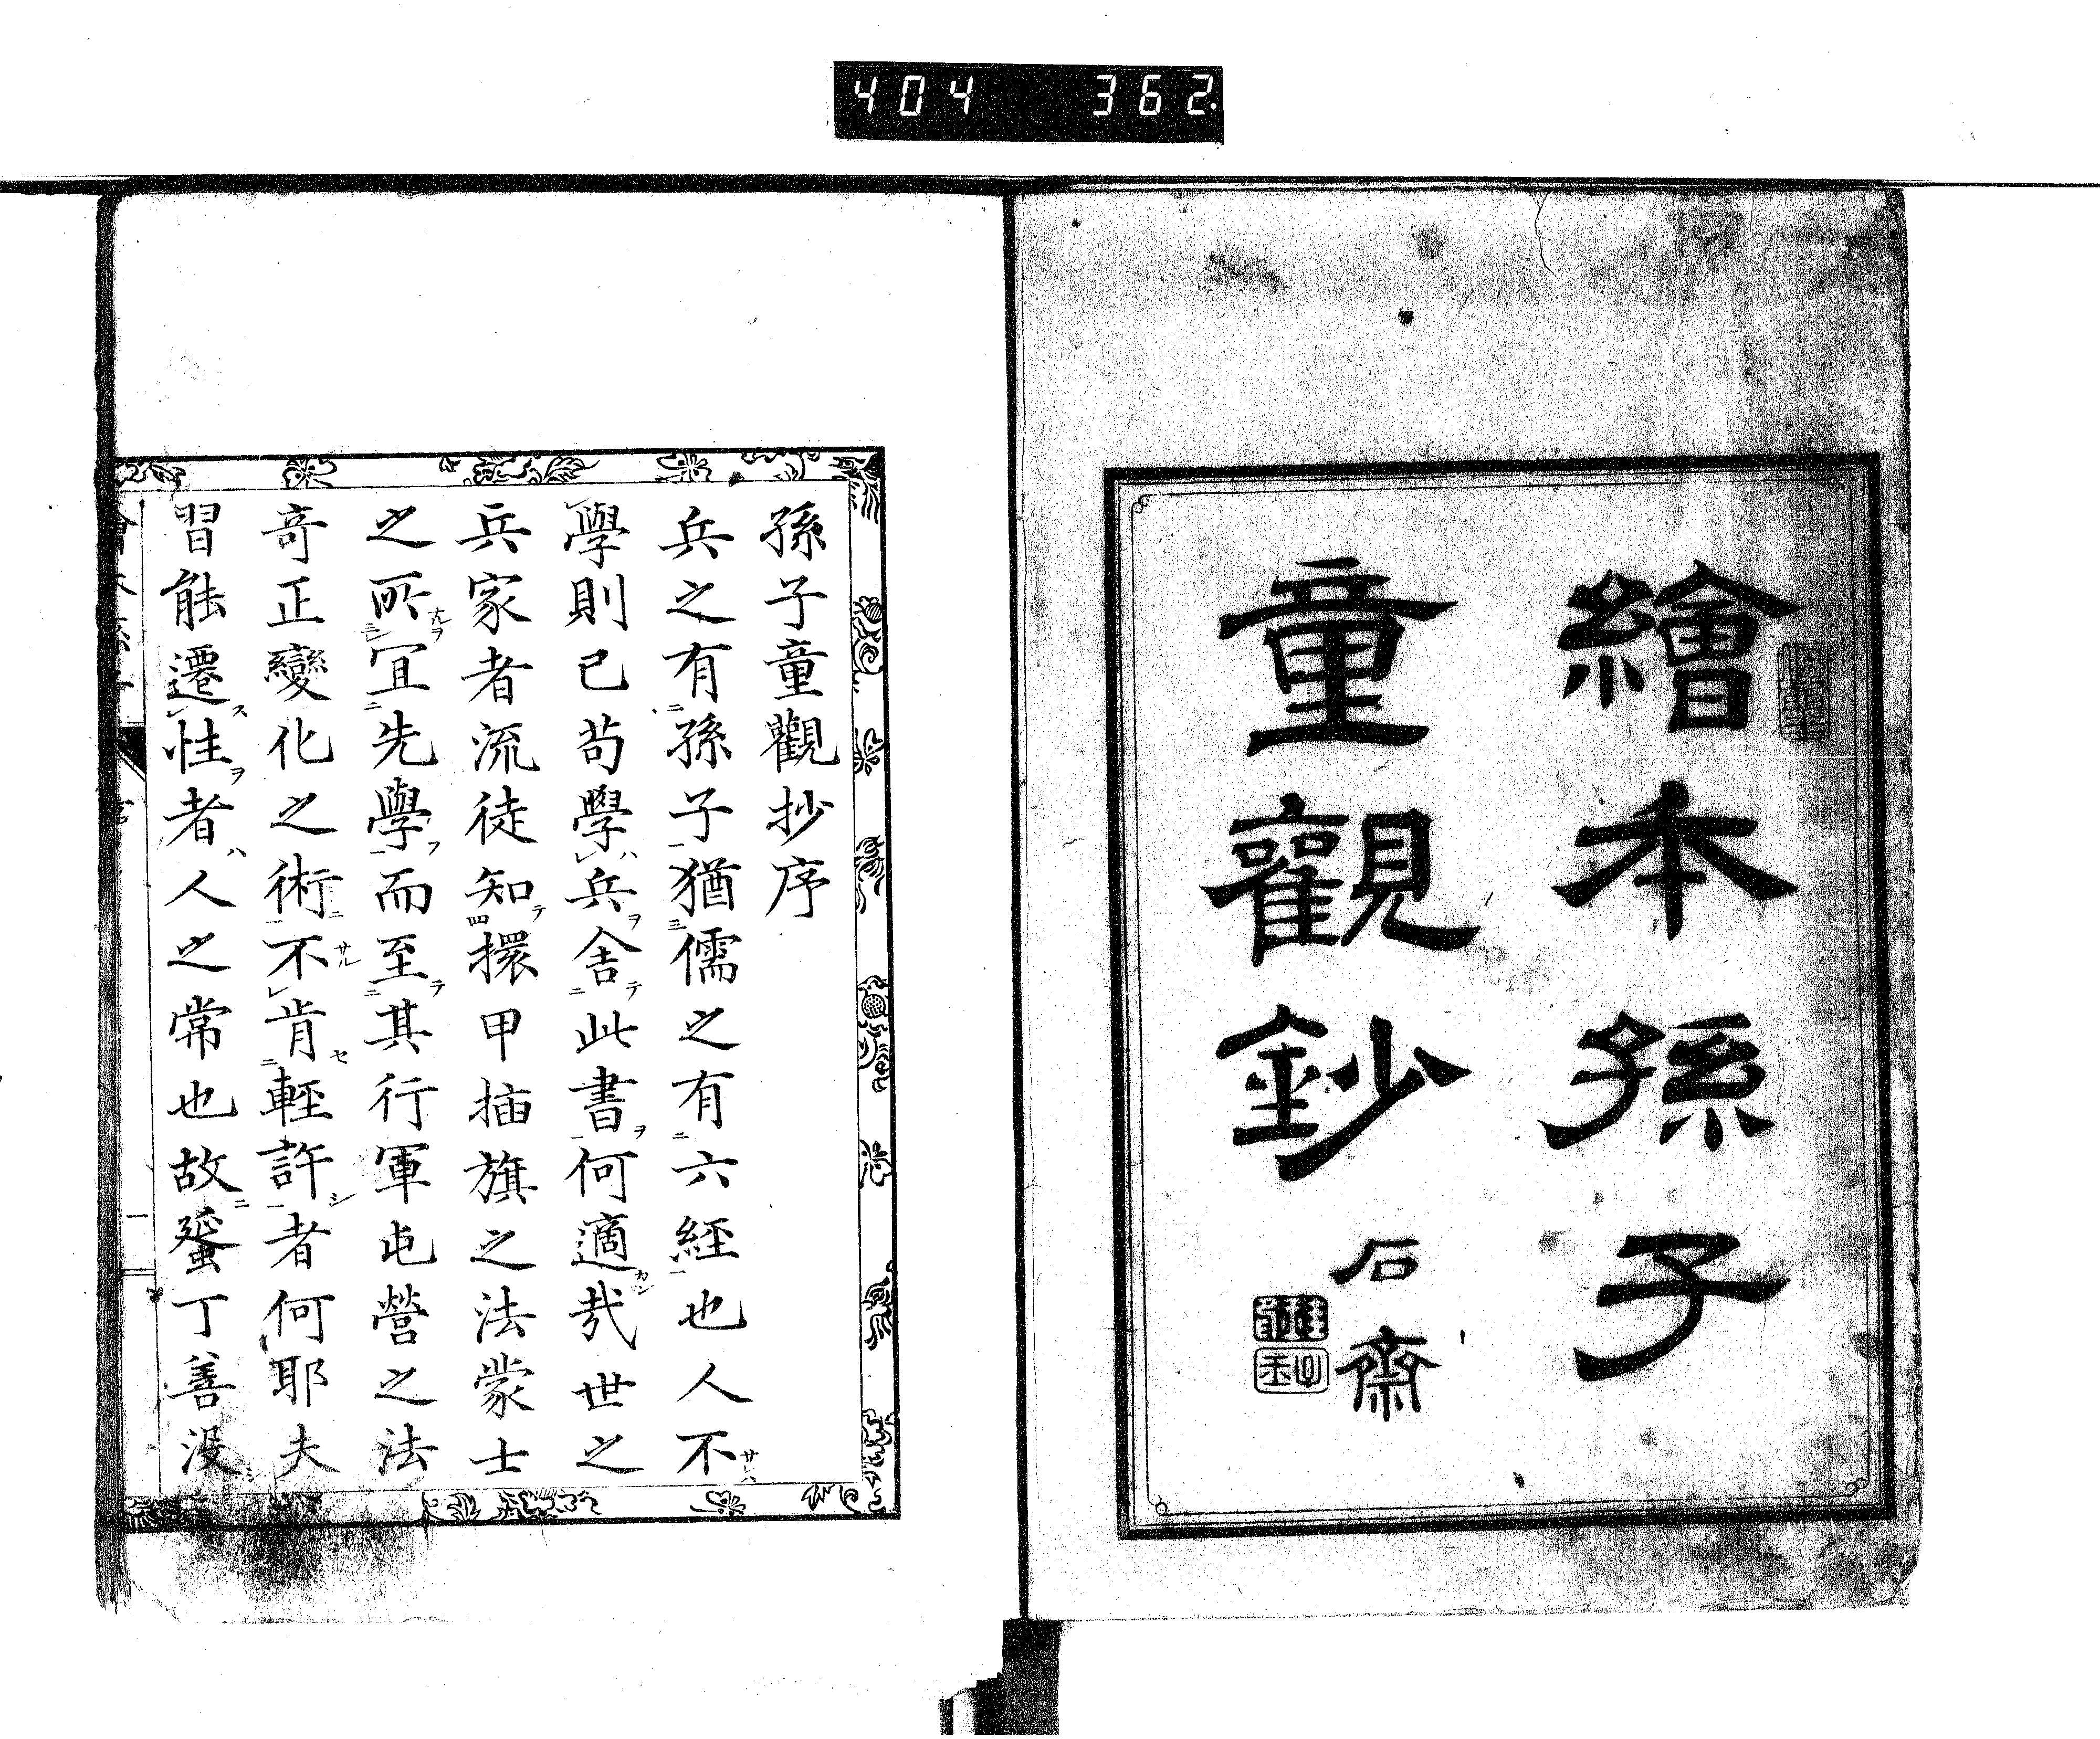 404 362.
繪本孫子
童觀鈔
石齋
孫子童觀抄序
兵之有孫子猶儒之有六經也人不
學則已苟學兵舍此書何適哉世之
兵家者流徒知擐甲插旗之法蒙士
之所宜先學而至其行軍屯營之法
奇正變化之術不肯輕許者何耶夫
習能遷性者人之常也故蜑丁善沒
一